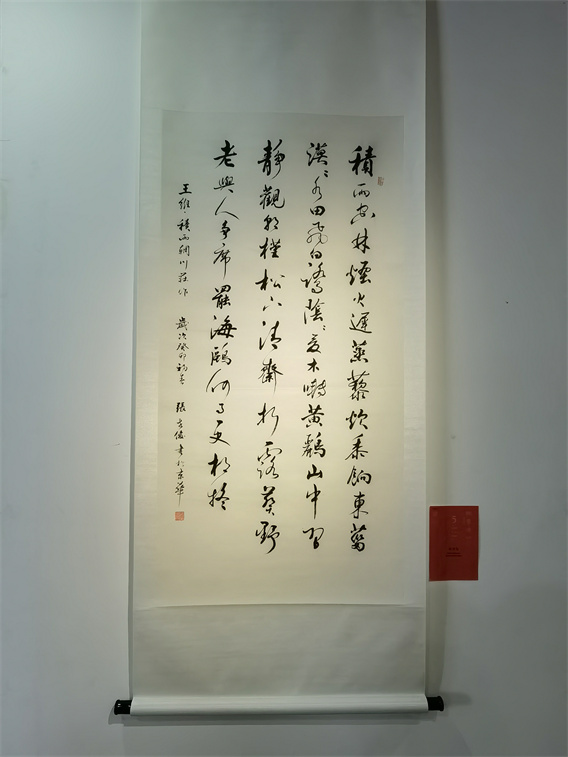 積雨空林煙火遲蒸藜炊黍餉東菑
漠〻水田飛白鷺陰〻夏木囀黃鸝山中習
靜觀朝槿松下清齋折露葵野
老與人爭席罷海鷗何事更相疑
王維積雨輞川莊作 歲次癸卯初春 張 書於京華